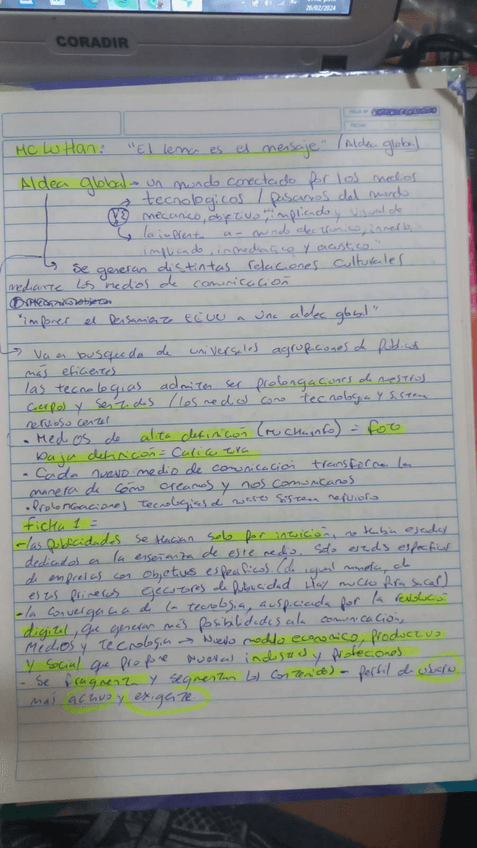 28/02/2024
CORADIR
MC LuHan: "El lema es el mensaje" (Aldea global)
Aldea global → un mundo conectado por los medios
tecnologicos / pasamos del mundo
mecanico, objetivo "implicado y visual de
la imprenta a → mundo electronico, 
implicado, inmediatico y acustico."
→ Se generan distintas relaciones culturales
mediante los medios de comunicación
"imponer el pensamiento EEUU a una aldea global"
→ Va en busqueda de universales agrupaciones de publicos
más eficientes
las tecnologias admiten ser prolongaciones de nuestros
cuerpos y sentidos / los medios como tecnologia y sistem
nervioso central
• Medios de alta definición (Mucha info) = foto
baja definición = Caricatura
• Cada nuevo medio de comunicación transforma la
manera de cómo creamos y nos comunicamos
• Prolongaciones tecnologias de nuestro sistem nervioso
Ficha 1 =
- las publicidades se hacian solo por intuición, no habia
dedicados en la enseñanza de este medio. Solo
de empresas con objetivos especificos (de igual manera, de
estos primeros ejecutores de publicidad Hay mucho para sacar)
- la convergencia de la tecnologia, auspiciada por la revolución
digital, que generan más posibilidades a la comunicación,
Medios y tecnologia → Nuevo modelo economico, productivo
y social que propone nuevas industrias y profeciones
- Se fragmentan y segmentan los contenidos - perfil de usuario
más activo y exigente